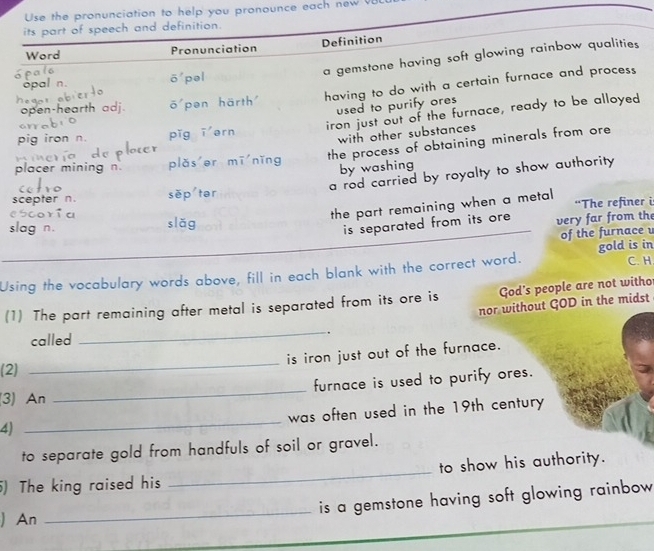 Use the pronunciation to help you pronounce each new
its part of speech and definition.
Word Pronunciation Definition
ópalo
opal n. ō′pəl a gemstone having soft glowing rainbow qualities
hogar abierto
open-hearth adj. ō′pən härth′ having to do with a certain furnace and process
used to purify ores
arrabio
pig iron n. pĭg ī′ərn iron just out of the furnace, ready to be alloyed
with other substances
minería de placer
placer mining n. plăs′ər mī′nĭng the process of obtaining minerals from ore
by washing
cetro
scepter n. sĕp′tər a rod carried by royalty to show authority
escoria
slag n. slăg the part remaining when a metal
is separated from its ore
"The refiner i
very far from the
of the furnace
gold is in
C. H.
Using the vocabulary words above, fill in each blank with the correct word.
God's people are not witho
nor without GOD in the midst
(1) The part remaining after metal is separated from its ore is
called .
(2) is iron just out of the furnace.
3) An furnace is used to purify ores.
4) was often used in the 19th century
to separate gold from handfuls of soil or gravel.
5) The king raised his to show his authority.
) An is a gemstone having soft glowing rainbow